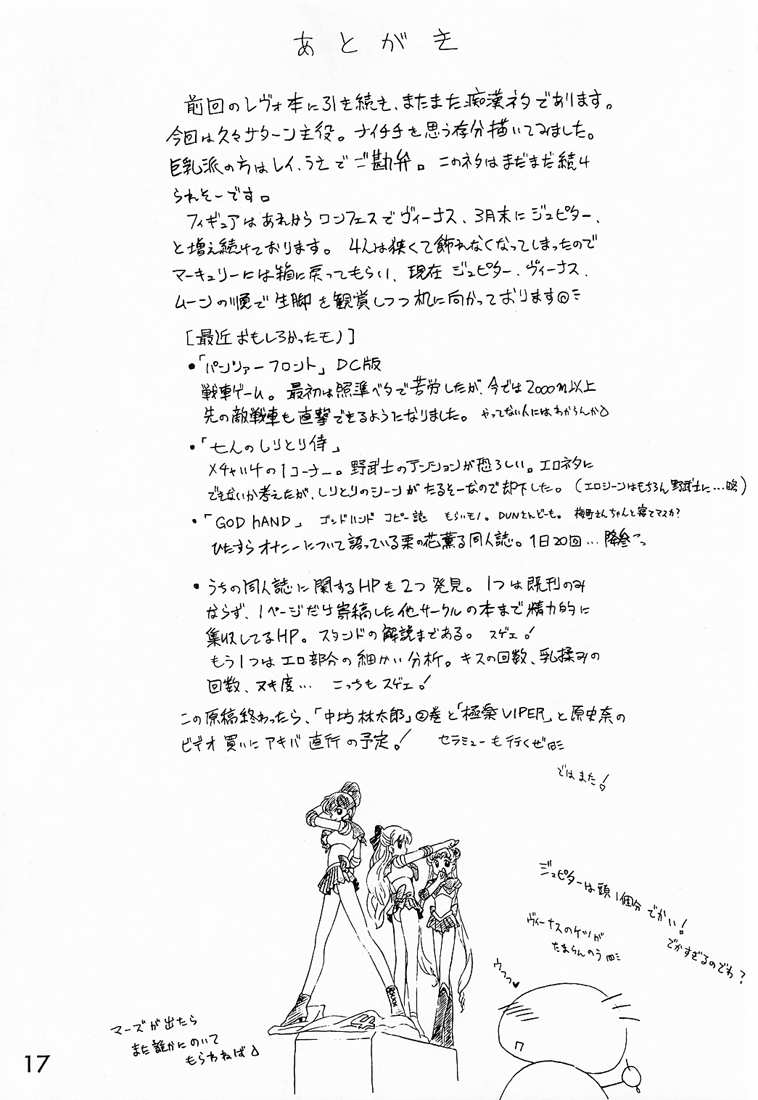 あとがき
前回のレヴォ本に引き続き、またまた痴漢ネタであります。
今回は久々サターン主役。ナイチチを思う存分描いてみました。
巨乳派の方はレイ、うえでご勘弁。このネタはまだまだ続け
られそーです。
フィギュアはあれからワンフェスでヴィーナス、3月末にジュピター、
と増え続けております。4人は狭くて飾れなくなってしまったので
マーキュリーには箱に戻ってもらい、現在ジュピター、ヴィーナス、
ムーンの順で生脚を観賞しつつ机に向かっております
[最近おもしろかったモノ]
•「パンツァーフロント」DC版
戦車ゲーム。最初は照準ベタで苦労したが、今では2000m以上
先の敵戦車も直撃できるようになりました。やってない人にはわからんか
•「七人のしりとり侍」
メチャイケの1コーナー。野武士のテンションが恐ろしい。エロネタに
できないか考えたが、しりとりのシーンがたるそーなので却下した。(エロシーンはもちろん野武士に…略)
•「GOD HAND」ゴッドハンド コピー誌 もらいモノ。DUNさんどーも。梅野さんちゃんと寝てマスか?
ひたすらオナニーについて語っている栗の花薫る同人誌。1日20回…降参
•うちの同人誌に関するHPを2つ発見。1つは既刊のみ
ならず、1ページだけ寄稿した他サークルの本まで精力的に
集収してるHP。スタンドの解説まである。スゲェ!
もう1つはエロ部分の細かい分析。キスの回数、乳揉みの
回数、ヌキ度… こっちもスゲェ!
この原稿終わったら、「中坊林太郎」②巻と「極楽VIPER」と原史奈の
ビデオ買いにアキバ直行の予定。! セラミューも行くぜ
ではまた!
ジュピターは頭1個分でかい!
でかすぎるのでわ?
ヴィーナスのケツが
たまらんのう
ウフッ♥
マーズが出たら
また誰かにのいて
もらわねば
17